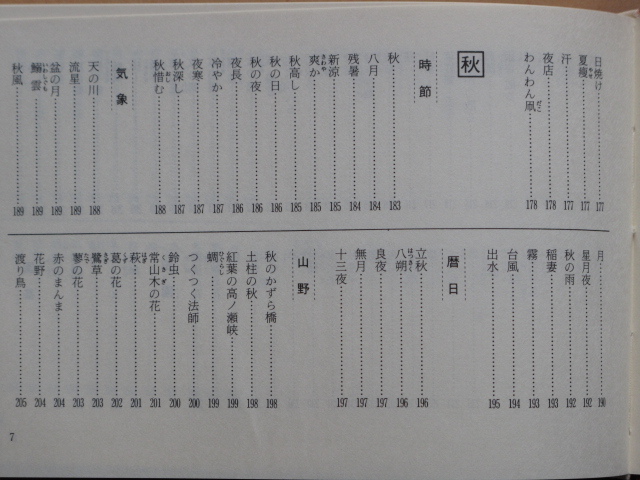 日焼け……177
夏瘦……177
汗……177
夜店……178
わんわん凧……178
秋
時節
秋……183
八月……184
残暑……184
新涼……185
爽か……185
秋高し……185
秋の日……186
秋の夜……186
夜長……186
冷やか……187
夜寒……187
秋深し……187
秋惜む……188
気象
天の川……188
流星……189
盆の月……189
鰯雲……189
秋風……189
月……190
星月夜……192
秋の雨……192
稲妻……193
霧……193
台風……194
出水……195
暦日
立秋……196
八朔……196
良夜……197
無月……197
十三夜……197
山野
秋のかずら橋……198
土柱の秋……198
紅葉の高ノ瀬峡……199
蜩……199
つくつく法師……200
鈴虫……200
常山木の花……201
萩……201
葛の花……202
鷺草……203
蓼の花……203
赤のまんま……204
花野……204
渡り鳥……205
7